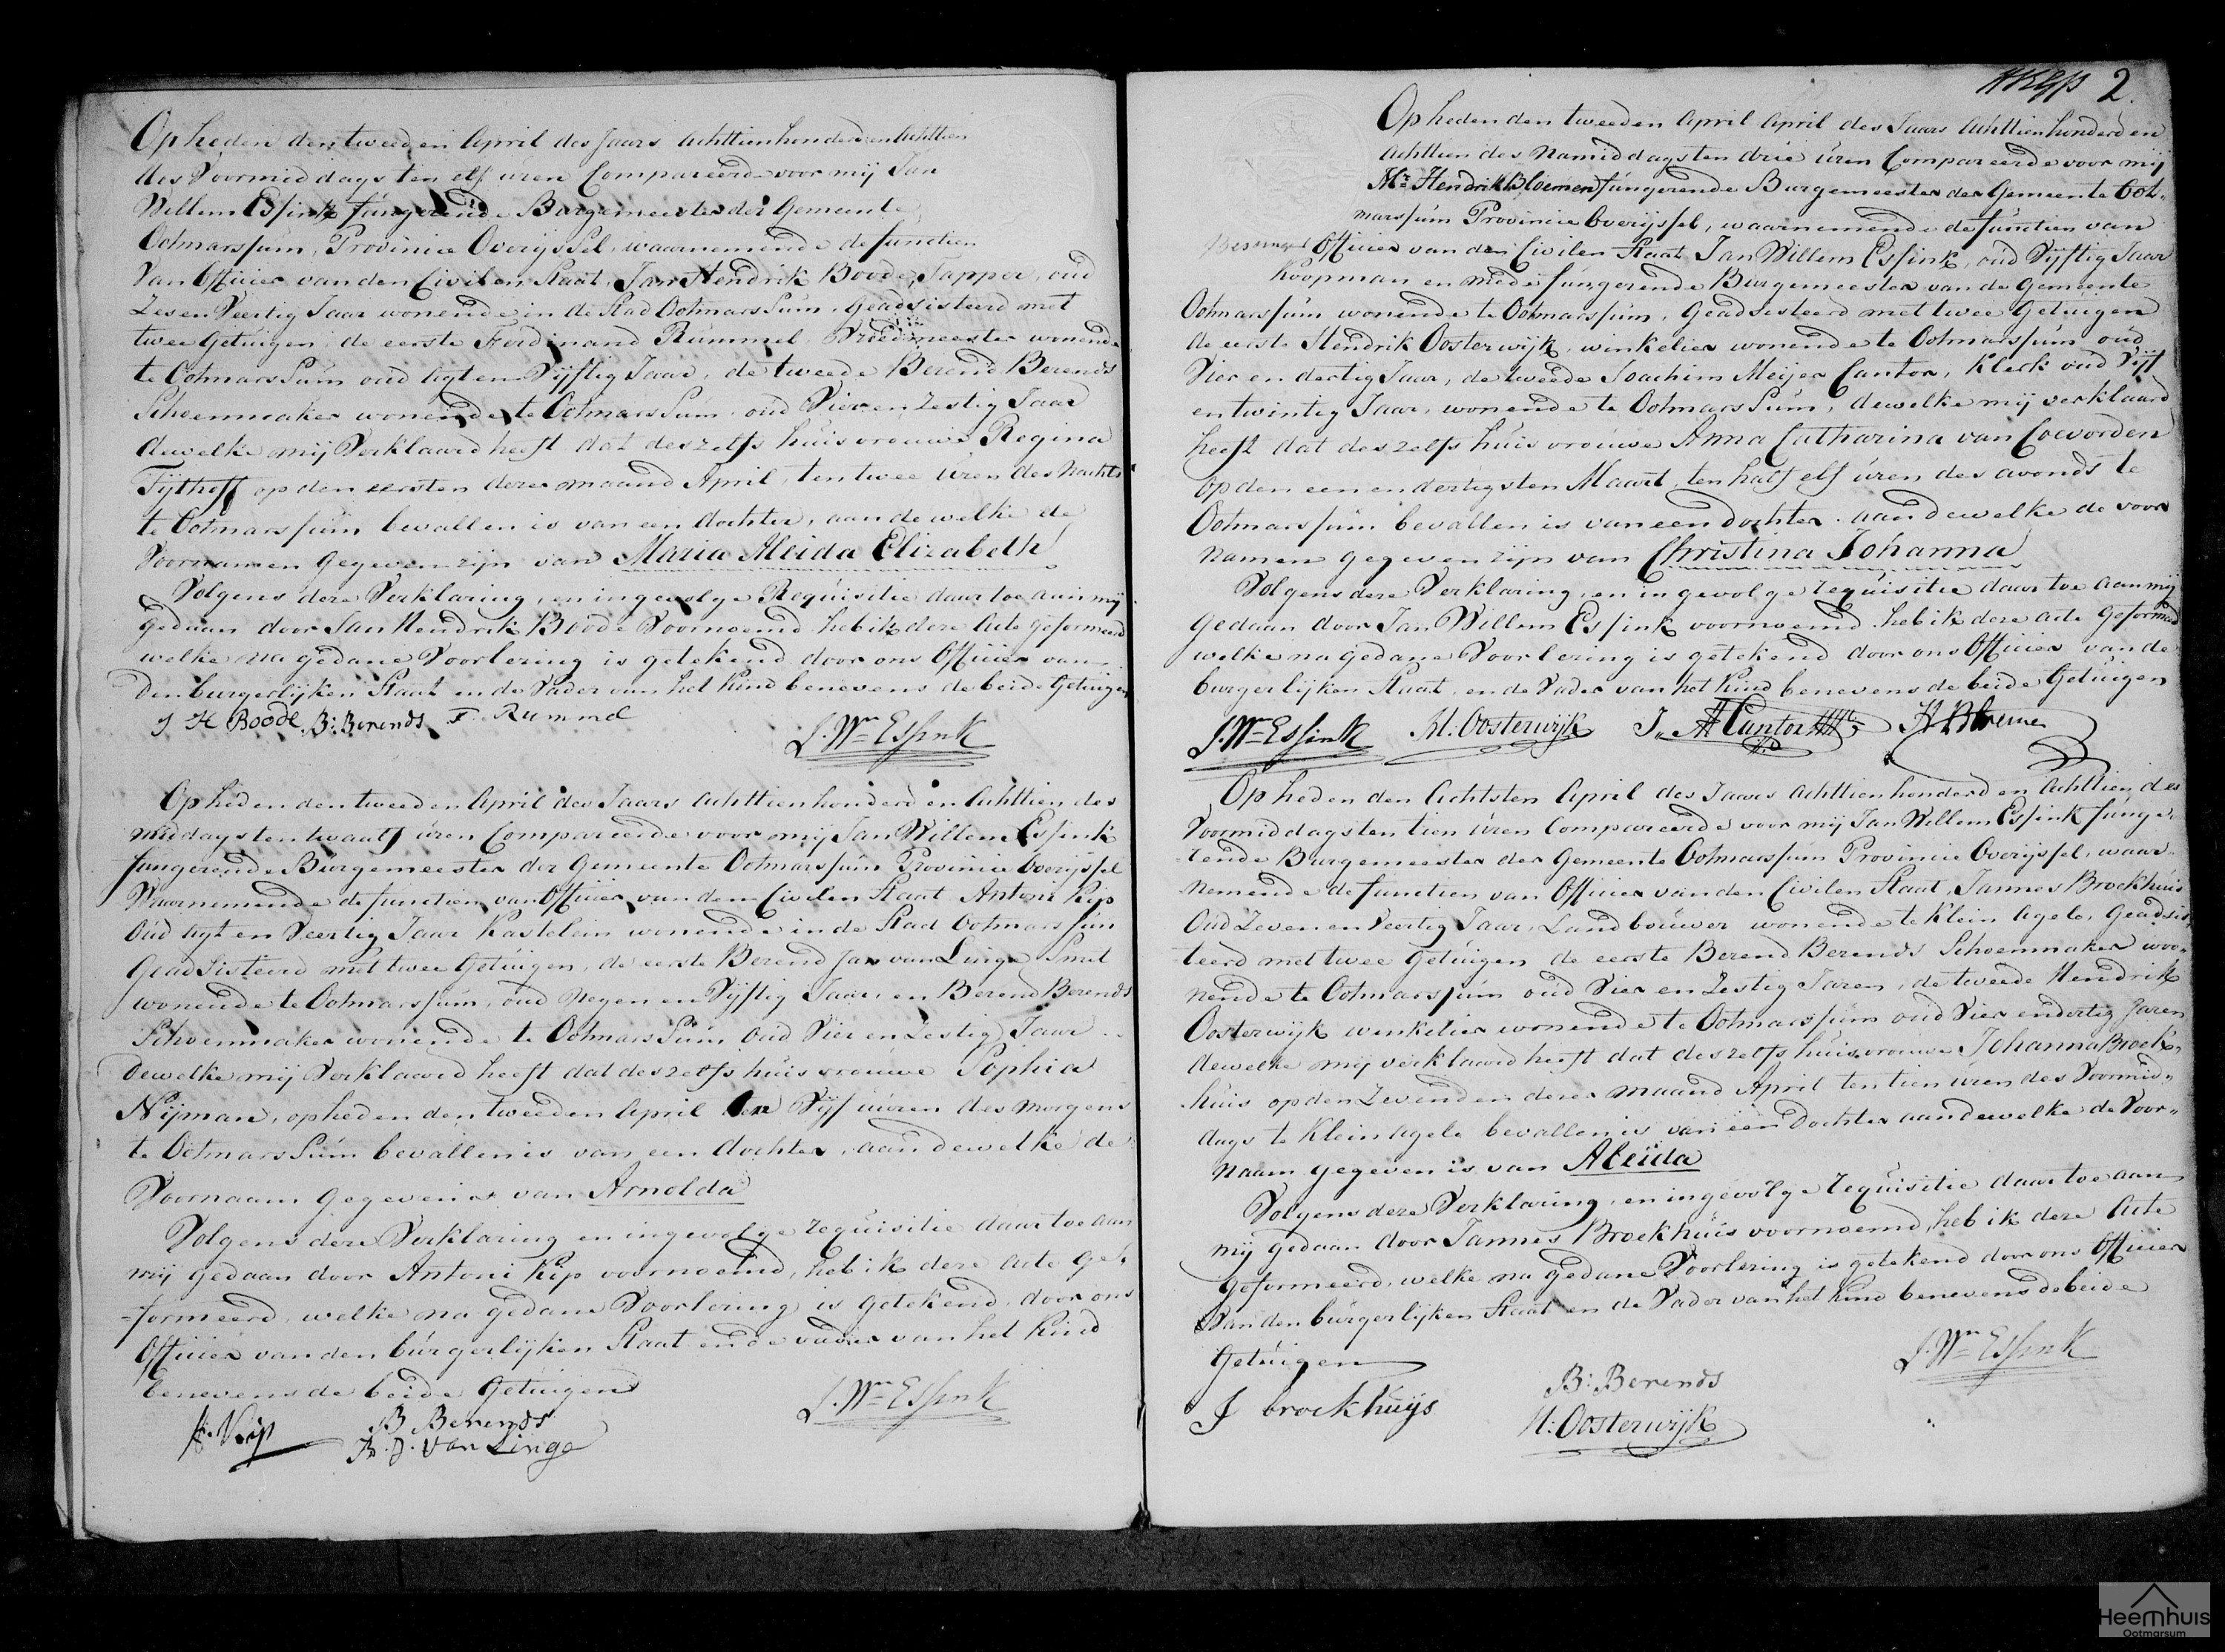 Op heden den tweeden April des Jaars Achttienhonderdenachttien
des Voormiddags ten elf uren Compareerde voor mij Jan
Willem Essink fungerende Burgemeester der Gemeente
Ootmarssum, Provincie Overijssel, waarnemende de functien
Van Officier van den Civilen Staat, Jan Hendrik Boode, Tapper, oud
Zes en Veertig Jaar wonende in de Stad Ootmarssum, geadsisteerd met
twee Getuigen, de eerste Ferdinand Rummel, wonende
te Ootmarssum oud agt en Vijftig Jaar, de tweede Berend Berends
Schoenmaker wonende te Ootmarssum, oud Vier en Zestig Jaar
dewelke mij Verklaard heeft dat deszelfs huisvrouwe Regina
Tijthoff op den eersten dezer maand April, ten twee uren des Nachts
te Ootmarssum bevallen is van een dochter, aan dewelke de
Voornamen gegeven zijn van Maria Aleida Elizabeth
Volgens deze Verklaring, en ingevolge Requisitie daar toe aan mij
gedaan door Jan Hendrik Boode Voornoemd heb ik deze Acte geformeerd
welke na gedane Voorlezing is getekend door ons Officier van
den burgerlijken Staat en de Vader van het Kind benevens de beide Getuigen
J H Boode B: Berends F. Rummel
J. Wm Essink
Op heden den tweeden April des Jaars Achttienhonderd en Achttien des
middags ten twaalf uren Compareerde voor mij Jan Willem Essink
fungerende Burgemeester der Gemeente Ootmarssum Provincie Overijssel
Waarnemende de functien van Officier van den Civilen Staat Antoni Kip
Oud agt en Veertig Jaar Kastelein wonende in de Stad Ootmarssum
Geadsisteerd met twee Getuigen, de eerste Berend Jan van Linge Smit
wonende te Ootmarssum, oud Negen en Vijftig Jaar, en Berend Berends
Schoenmaker wonende te Ootmarssum, oud Vier en Zestig Jaar
Dewelke mij Verklaard heeft dat deszelfs huisvrouwe Sophia
Nijman, op heden den tweeden April ten Vijf uuren des morgens
te Ootmarssum bevallen is van een dochter, aan dewelke de
Voornaam gegeven is van Arnolda
Volgens deze Verklaring en ingevolge requisitie daar toe aan
mij gedaan door Antoni Kip voornoemd, heb ik deze Acte ge-
-formeerd, welke na gedane Voorlezing is getekend door ons
Officier van den burgerlijken Staat en de vader van het Kind
benevens de beide Getuigen
A. Kip B Berends
B. J. van Linge
J. Wm Essink
2.
Op heden den tweeden April April des Jaars Achttienhonderd en
achttien des Namiddags ten drie uren Compareerde voor mij
Mr Hendrik Bloemen fungerende Burgemeester der Gemeente Oot-
marssum Provincie Overijssel, waarnemende de functien van
Officier van den Civilen Staat Jan Willem Essink, oud Vijftig Jaar
Koopman en mede fungerende Burgemeester van de Gemeente
Ootmarssum wonende te Ootmarssum, Geadsisteerd met twee Getuigen
de eerste Hendrik Oosterwijk, winkelier wonende te Ootmarssum oud
Vier en dertig Jaar, de tweede Joachim Meijer Cantor, Klerk oud Vijf
en twintig Jaar, wonende te Ootmarssum, dewelke mij verklaard
heeft dat deszelfs huisvrouwe Anna Catharina van Coevorden
op den een en dertigsten Maart, ten half elf uren des avonds te
Ootmarssum bevallen is van een dochter, aan dewelke de voor
namen gegeven zijn van Christina Johanna
Volgens deze Verklaring, en ingevolge requisitie daar toe aan mij
gedaan door Jan Willem Essink voornoemd heb ik deze acte geformeerd
welke na gedane Voorlezing is getekend door ons Officier van de
burgerlijken Staat, en de Vader van het Kind benevens de beide Getuigen
J. Wm Essink H. Oosterwijk J. M Cantor H Bloemen
Op heden den Achtsten April des Jaars Achttienhonderd en Achttien des
Voormiddags ten tien uren Compareerde voor mij Jan Willem Essink funge-
rende Burgemeester der Gemeente Ootmarssum Provincie Overijssel, waar-
nemende de functien van Officier van den Civilen Staat, Jannes Broekhuis
Oud Zeven en Veertig Jaar, Landbouwer wonende te Klein Agele, Geadsis-
teerd met twee Getuigen de eerste Berend Berends Schoenmaker woo-
nende te Ootmarssum oud Vier en Zestig Jaren, de tweede Hendrik
Oosterwijk winkelier wonende te Ootmarssum oud Vier en dertig Jaren
dewelke mij verklaard heeft dat deszelfs huisvrouwe Johanna Broek-
huis op den Zevenden dezer maand April ten tien uren des Voormid-
dags te Klein Agele bevallen is van een Dochter aan dewelke de Voor-
naam gegeven is van Aleida
Volgens deze Verklaring, en ingevolge requisitie daar toe aan
mij gedaan door Jannes Broekhuis voornoemd, heb ik deze Acte
geformeerd, welke na gedane Voorlezing is getekend door ons Officier
Van den burgerlijken Staat en de Vader van het Kind benevens de beide
Getuigen
J. Wm Essink
B: Berends
J broekhuijs
H. Oosterwijk
Heemhuis
Ootmarsum